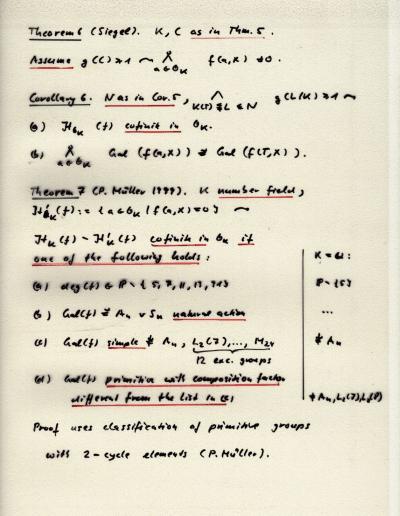 Theorem 6 (Siegel). K, C as in Thm. 5.
Assume g(C) ≥ 1 ⤳ ⩚ a∈O_K f(a,X) ≠ 0.
Corollary 6. N as in Cor. 5, ⋀ K(T) ⊊ L ⊆ N g(L/K) ≥ 1 ⤳
(a) H_{O_K}(f) cofinite in O_K.
(b) ⩚ a∈O_K Gal(f(a,X)) ≅ Gal(f(T,X)).
Theorem 7 (P. Müller 1999). K number field,
H'_{O_K}(f) := {a∈O_K | f(a,x)=0} ⤳
H_{O_K}(f) - H'_{O_K}(f) cofinite in O_K if
one of the following holds: K = Q:
(a) deg(f) ∈ P \ {5, 7, 11, 13, 31} P \ {5}
(b) Gal(f) ≠ A_n v S_n natural action ...
(c) Gal(f) simple ≠ A_n, L_2(7), ..., M_24 ≠ A_n
12 exc. groups
(d) Gal(f) primitive with composition factor
different from the list in (c) ≠ A_n, L_2(7), L_2(8)
Proof uses classification of primitive groups
with 2-cycle elements (P. Müller).